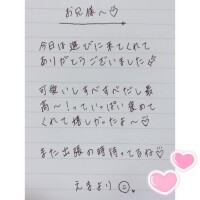 お兄様へ♡
今日は遊びに来てくれて
ありがとうございました
可愛いしすべすべだし最
高〜!っていっぱい褒めて
くれて嬉しかったよ〜♡
また出張の時待ってるね♡
えまより☺